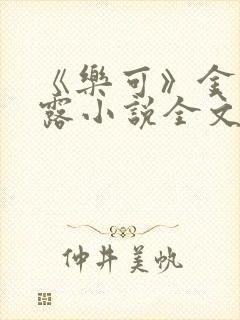 《樂可》金
露小說全文
仲井美帆